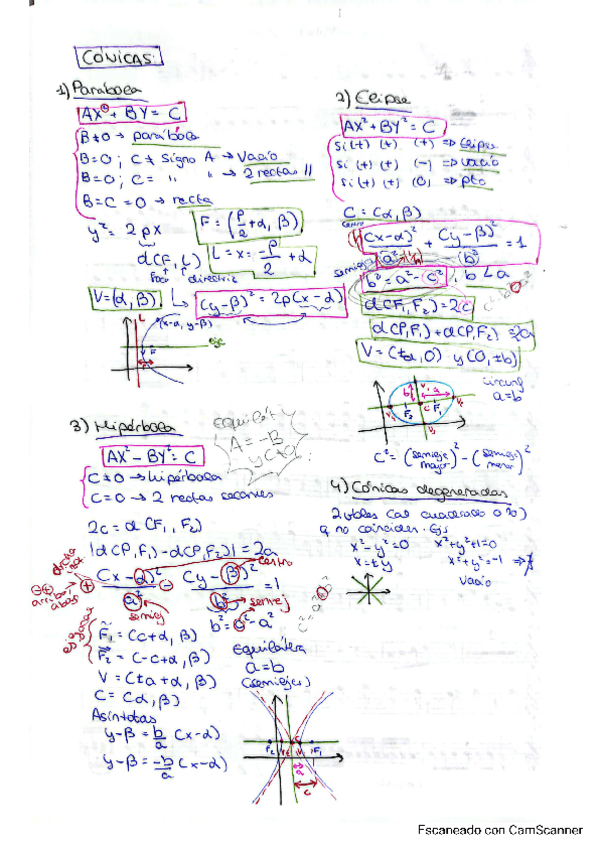 CÓNICAS:
1) Parábola
AX² + BY = C
B ≠ 0 → parábola
B = 0 ; C ≠ signo A → Vacío
B = 0 ; C = " " → 2 rectas //
B = C = 0 → recta
y² = 2px
F = (p/2 + α, β)
d(F, L)
foco directriz
L = x = -p/2 + α
V = (α, β)
(y-β)² = 2p(x-α)
(x-α, y-β)
L
F
eje
2) Elipse
AX² + BY² = C
Si (+) (+) (+) ⇒ Elipse
Si (+) (+) (-) ⇒ vacío
Si (+) (+) (0) ⇒ pto
C = (α, β)
centro
(x-α)²/a² + (y-β)²/b² = 1
b² = a² - c², b < a
d(F₁, F₂) = 2c
d(P,F₁) + d(P,F₂) = 2a
V = (±a, 0) y (0, ±b)
a = b
C² = (semieje mayor)² - (semieje menor)²
3) Hipérbola
AX² - BY² = C
C ≠ 0 → hipérbola
C = 0 → 2 rectas secantes
A = -B
2c = d(F₁, F₂)
|d(P,F₁) - d(P,F₂)| = 2a
centro
(x-α)²/a² - (y-β)²/b² = 1
semiej
semiej
b² = c² - a²
F₁ = (c+α, β)
F₂ = (-c+α, β)
V = (±a+α, β)
C = (α, β)
Asíntotas
y-β = b/a (x-α)
y-β = -b/a (x-α)
Equilátera
a = b
(semiejes)
4) Cónicas degeneradas
q no coinciden. Ejs
x² - y² = 0
x² + y² + 1 = 0
x = ± y
x² + y² = -1 ⇒ ∄
Vacío
Escaneado con CamScanner